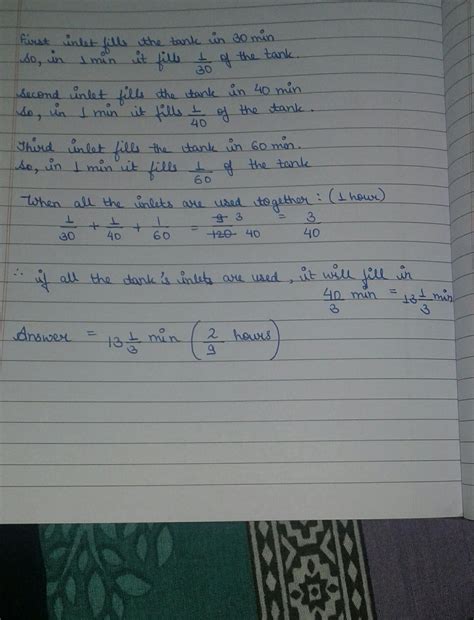 First inlet fills the tank in 30 min
so, in 1 min it fills 1/30 of the tank.
Second inlet fills the tank in 40 min
So, in 1 min it fills 1/40 of the tank.
Third inlet fills the tank in 60 min.
So, in 1 min it fills 1/60 of the tank
When all the inlets are used together : (1 hour)
1/30 + 1/40 + 1/60 = 9 3/120 40 = 3/40
∴ if all the tank's inlets are used, it will fill in
40/3 min = 13 1/3 min
Answer = 13 1/3 min (2/9 hours)